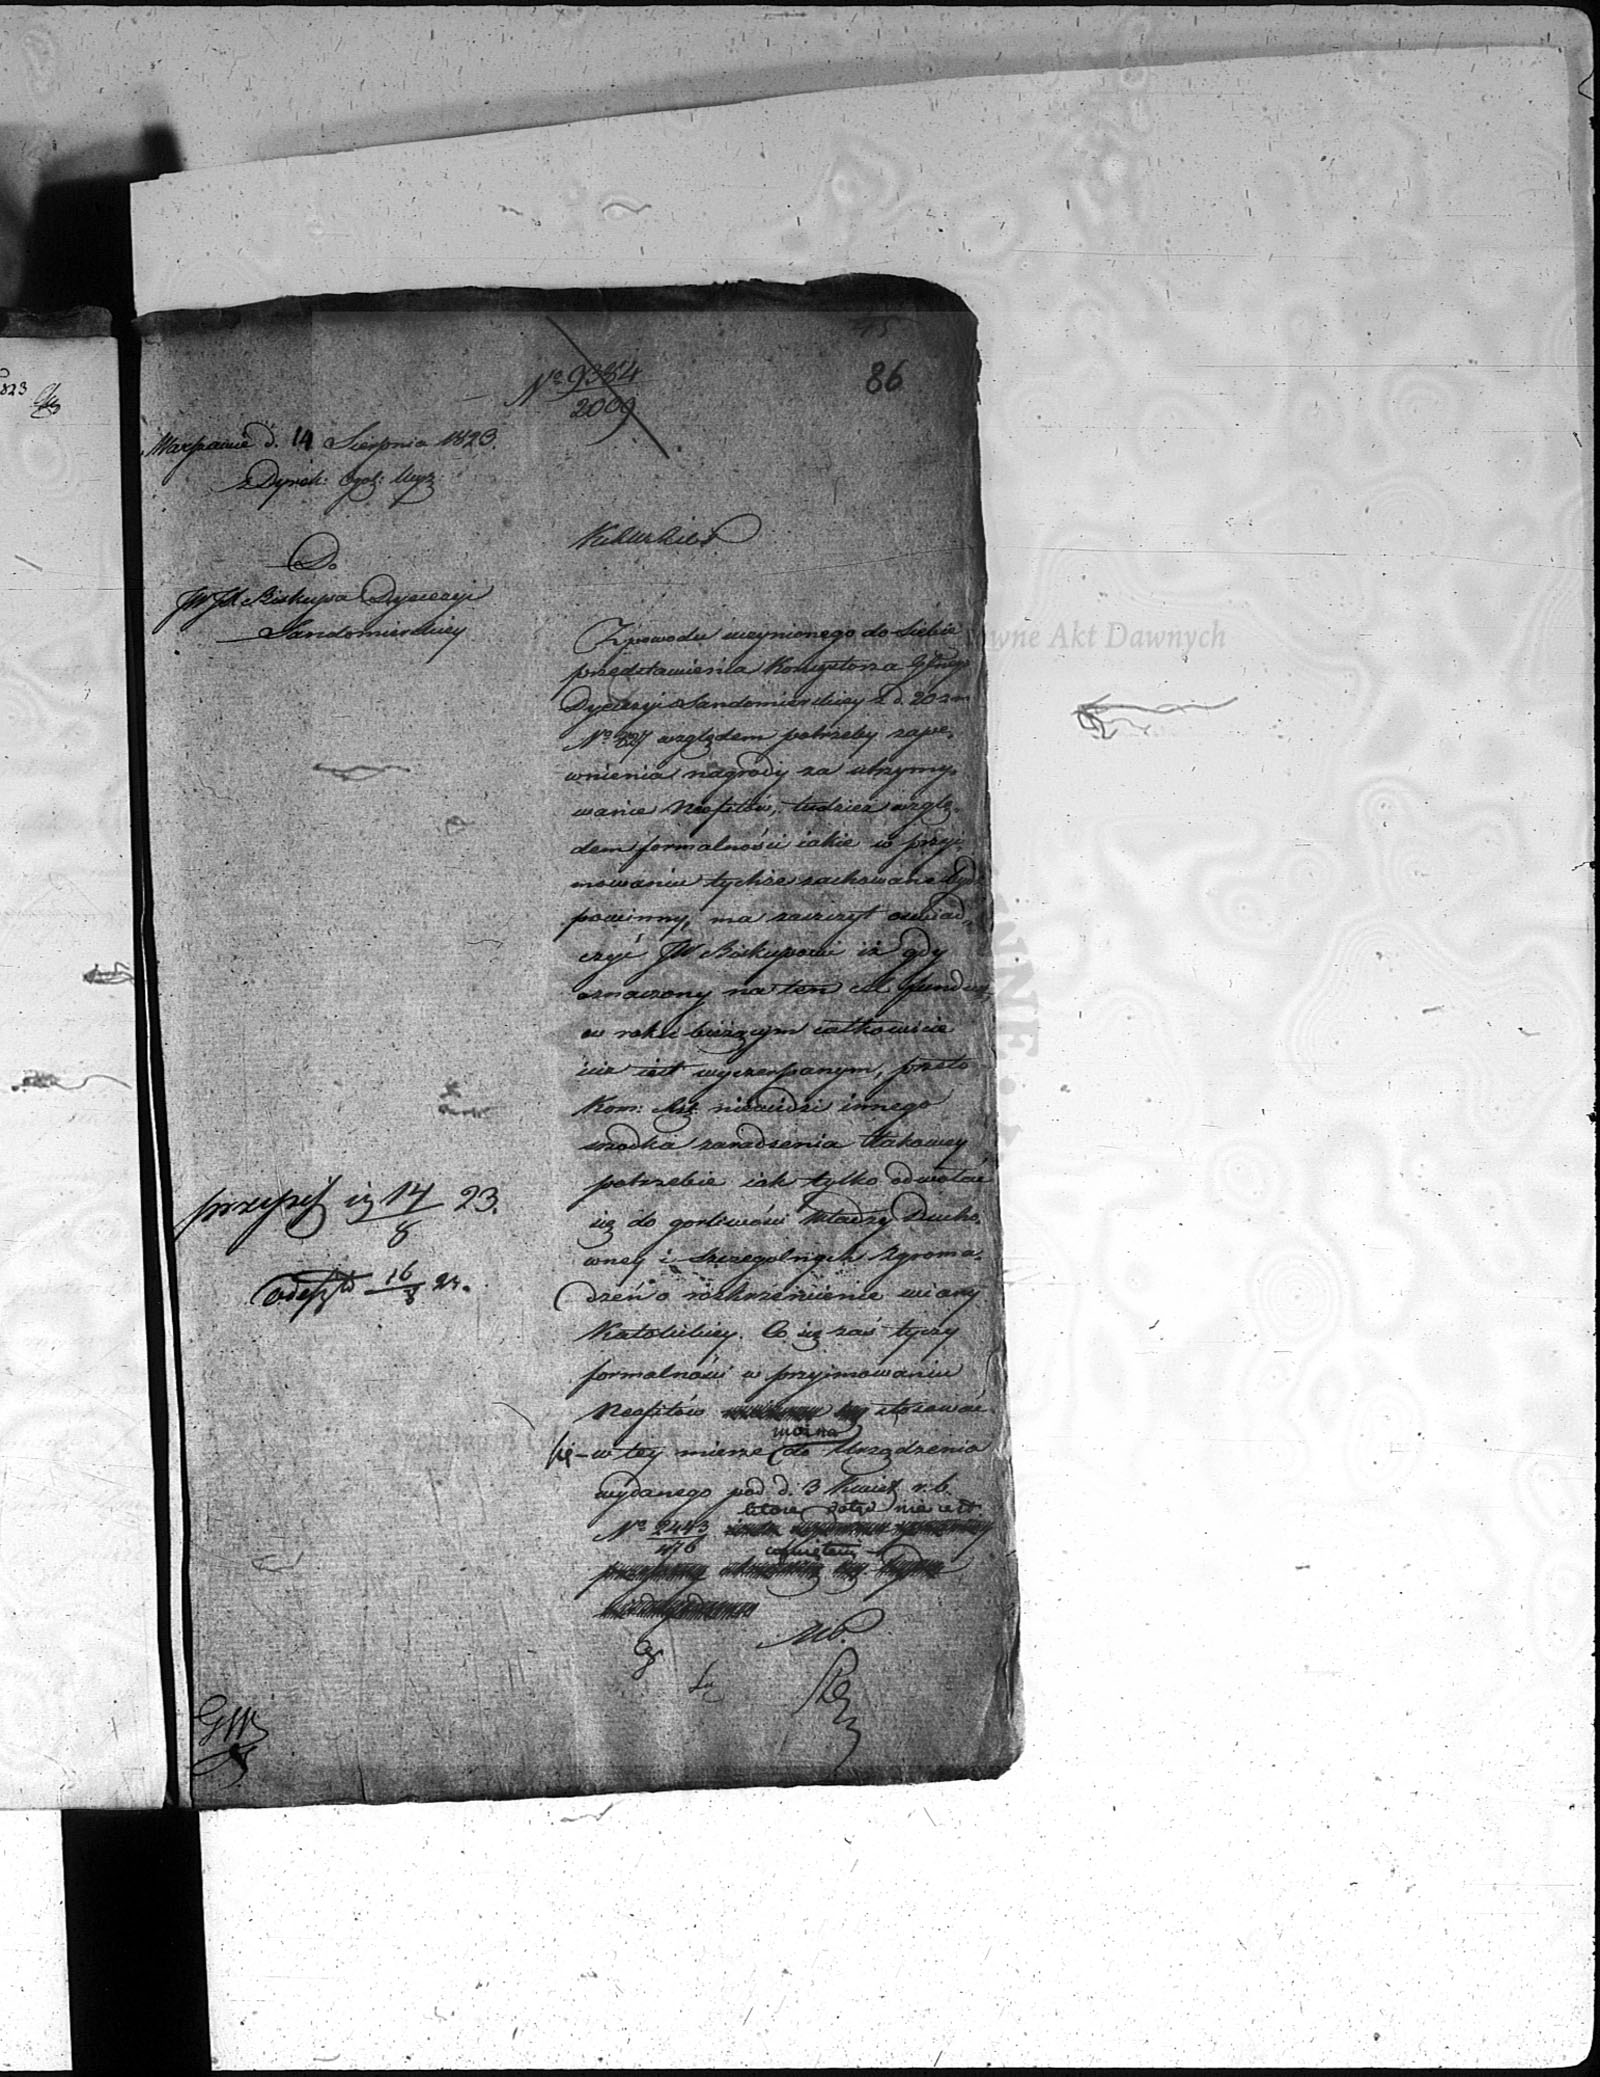 75
86
No 9384
2009
Warszawie d. 14 Sierpnia 1823.
z Dyrek:
Do
JW JX Biskupa Dyecezyi
Sandomierskiey
Z powodu uczynionego do siebie
przedstawienia Konsystorza
Dyecezyi Sandomierskiey z d. 20
No względem potrzeby zape,
wnienia nagrody za utrzymy,
wanie Neofitów, tudzież wzglę,
dem formalności iakie w przyi,
mowaniu tychże zachowane być
powinny, ma zaszczyt oświad,
czyć JW Biskupowi iż gdy
oznaczony na ten cel fundusz
w roku bieżącym całkowicie
iuż iest wyczerpanym, przeto
Kom: niewidzi innego
srodka zaradzenia takowey
potrzebie iak tylko odwołać
się do gorliwości Władzy Ducho,
wney i szczegolnych Zgroma,
dzeń o rozkrzewienie wiary
Katolickiey. Co się zaś tyczy
formalności w przyimowaniu
Neofitów stosować
można
się - w tey mierze do Urządzenia
wydanego pod d. 3 Kwiet r. b.
które dotąd nie iest
No 2443
476
cofnięte
przepisał 14/8 23.
odesz 16/8 23.
GW